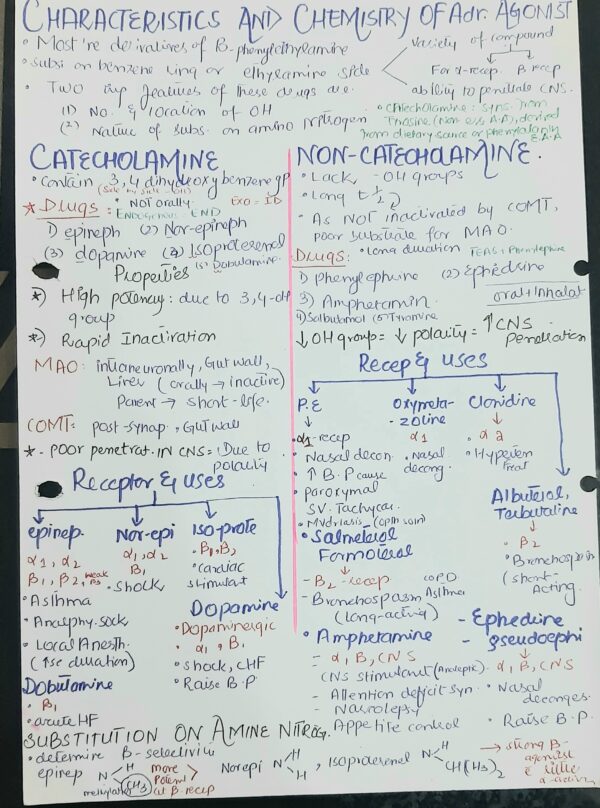 CHARACTERISTICS AND CHEMISTRY OF Adr. AGONIST
• Most're derivatives of B-phenylethylamine
• Subs on benzene ring or ethylamine side
Variety of compound
For α-recep B recep
ability to penetrate CNS.
• Two imp features of these drugs are.
(1) No. & location of OH
(2) Nature of subs. on amino nitrogen
• Catecholamine: syns. from
Tyrosine (Non ess A.A), derived
from dietary source or phenylalanin
E.A.A
CATECHOLAMINE
• Contain 3,4 dihydroxybenzene gp
(Side by side
• NOT orally.
EXO = ID
* Drugs:
ENDOGENOUS: END
1) epineph (2) Nor-epineph
(3) dopamine (4) Isoproterenol
(5) Dobutamine.
Properties
*) High potency: due to 3,4-OH
group
*) Rapid Inactivation
MAO: intraneuronally, Gut wall,
Liver (orally → inactive)
Parent → short-life.
COMT: post-synap, Gut wall
*- poor penetrat. IN CNS: Due to
polarity
Receptor & uses
epinep.
α1, α2
B1, B2, weak B3
• Asthma
• Anaphy. sock
• Local Anesth.
(↑se duration)
Nor-epi
α1, α2
B1
• Shock
ISO-prote
• B1, B2
• Cardiac
stimulant
Dopamine
• Dopaminergic
• α1, B1
• shock, CHF
• Raise B.P
Dobutamine
• B1
• acute HF
NON-CATECHOLAMINE.
• Lack, -OH groups
• Long t ½
• As NOT inactivated by COMT,
poor substrate for MAO.
Drugs: • Long duration
1) Phenylephrine (2) Ephedrine
3) Amphetamin.
4) Salbutamol (5) Tyramine
oral + Inhalat
↓ OH group = ↓ polarity = ↑ CNS
Penetration
Recep & uses
P.E
• α1-recep
• Nasal decon.
• ↑ B.P cause
• Paroxymal
SV. Tachycar.
• Mydriasis
Oxymeta-
zoline
α1
• Nasal
decong.
Clonidine
• α2
• Hyperten
treat
Albuterol,
Terbutaline
• B2
• Bronchospasm
(short-
Acting)
• Salmeterol
Formoterol
- B2-recep
- Bronchospasm
COPD
Asthma
(long-acting)
• Amphetamine
- α, B, CNS
CNS stimutant (Analeptic).
- Attention deficit syn.
- Narcolepsy
- Appetite control
- Ephedrine
- pseudoephi
α, B, CNS
• Nasal
deconges.
• Raise B.P.
SUBSTITUTION ON AMINE NITROG.
• determine B-selectivity
epinep N H
(CH3)
methylated
more
Potent
at B recep
Norepi N H H, Isoproterenol N H
CH(CH3)2
→ strong B-
agonist
& little
α-activity